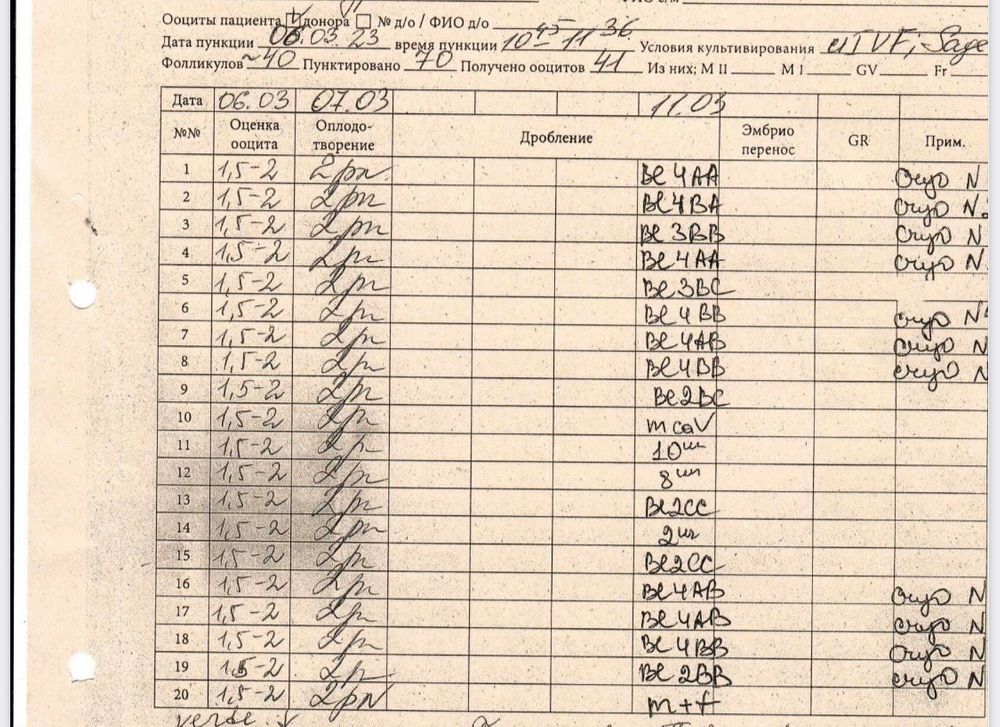 Ооциты пациента донора № д/о / ФИО д/о
Дата пункции 06.03.23 время пункции 10 45 - 11 36 Условия культивирования Sage
Фолликулов ~40 Пунктировано 70 Получено ооцитов 41 Из них; M II M I GV Fr
Дата 06.03 07.03 11.03
№№ Оценка ооцита Оплодо-творение Дробление Эмбрио перенос GR Прим.
1 1,5-2 2pn Bl 4AA Cryo N
2 1,5-2 2pn Bl 4BA Cryo N
3 1,5-2 2pn Bl 3BB Cryo N
4 1,5-2 2pn Bl 4AA Cryo N
5 1,5-2 2pn Bl 3BC
6 1,5-2 2pn Bl 4BB Cryo N
7 1,5-2 2pn Bl 4AB Cryo N
8 1,5-2 2pn Bl 4BB Cryo N
9 1,5-2 2pn Bl 2BC
10 1,5-2 2pn m cav
11 1,5-2 2pn 10
12 1,5-2 2pn 8
13 1,5-2 2pn Bl 2CC
14 1,5-2 2pn 2
15 1,5-2 2pn Bl 2CC
16 1,5-2 2pn Bl 4AB Cryo N
17 1,5-2 2pn Bl 4AB Cryo N
18 1,5-2 2pn Bl 4BB Cryo N
19 1,5-2 2pn Bl 2BB Cryo N
20 1,5-2 2pN m+f